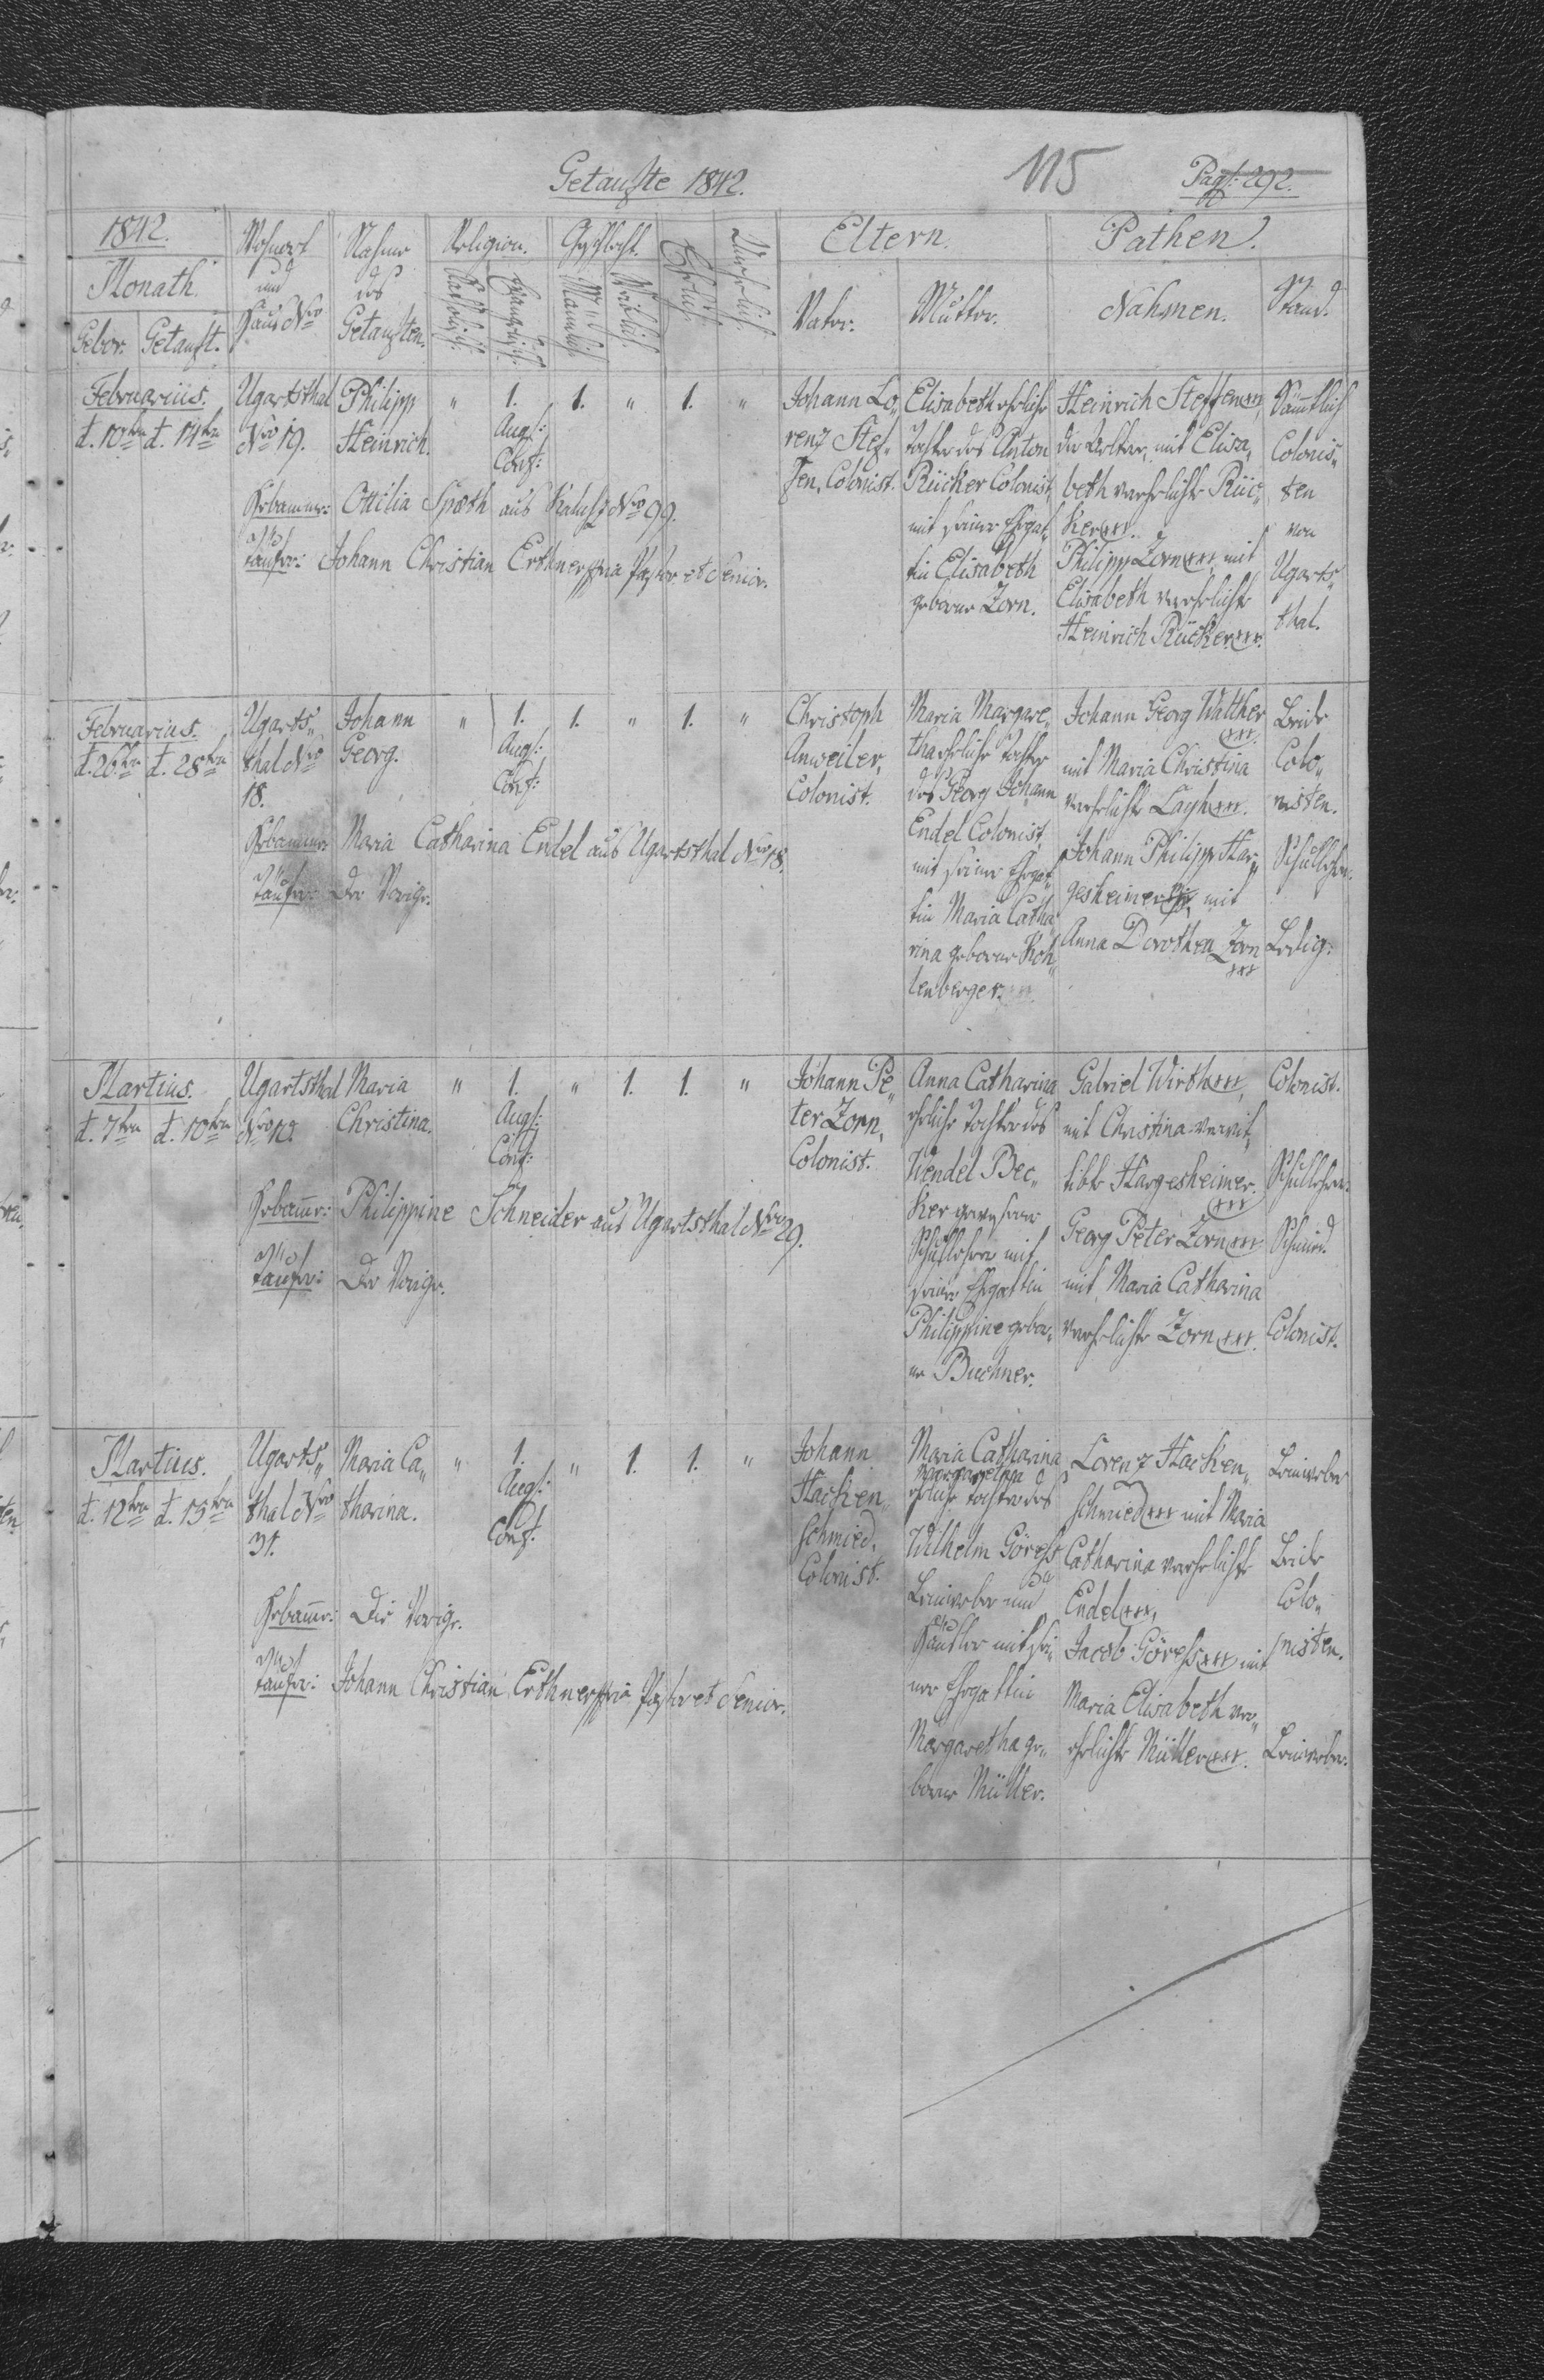 Getaufte 1842.
115
Pag: 292.
1842.
Monath.
Gebor. Getauft.
Wohnort
und
Haus Nro
Nahme
des
Getauften.
Religion.
Katholisch.
Evangelisch.
Geschlecht.
Männlich.
Weiblich.
Ehelich.
Unehelich.
Eltern.
Vater.
Mutter.
Pathen.
Nahmen.
Stand.
Februarius.
d. 10ten d. 14ten
Ugartsthal
Nro 19.
Philipp
Heinrich.
" 1. 1. " 1. "
Augs:
Conf:
Johann Lo„
renz Stef„
fen, Colonist.
Elisabeth eheliche
Tochter des Anton
Rücker Colonist,
mit seiner Ehegat„
tin Elisabeth
geborne Zorn.
Heinrich Steffen xxx,
der Aeltere, mit Elisa„
beth verehlichte Rüc„
ker xxx.
Philipp Zorn xxx, mit
Elisabeth verehlichte
Heinrich Rücker xxx.
Sämtlich
Colonis„
ten
von
Ugarts„
thal.
Hebamme: Ottilia Späth aus Kalusz Nro 99.
Täufer: Johann Christian Erthner mpria Pastor et Senior.
Februarius.
d. 26ten d. 28ten
Ugarts„
thal Nro
18.
Johann
Georg.
" 1. 1. " 1. "
Augs:
Conf:
Christoph
Anweiler,
Colonist.
Maria Margare„
tha eheliche Tochter
des Georg Johann
Endel Colonist,
mit seiner Ehegat„
tin Maria Catha„
rina geborne Koh„
lenberger.
Johann Georg Walther
xxx.
mit Maria Christina
verehlichte Layh xxx.
Johann Philipp Har„
gesheimer, mit
Anna Dorothea Zorn
xxx
Beide
Colo„
nisten.
Schullehrer.
Ledig.
Hebamme: Maria Catharina Endel aus Ugartsthal Nro 18.
Täufer: Der Vorige.
Martius.
d. 7ten d. 10ten
Ugartsthal
Nro 12.
Maria
Christina.
" 1. " 1. 1. "
Augs:
Conf:
Johann Pe„
ter Zorn,
Colonist.
Anna Catharina
eheliche Tochter des
Wendel Bec„
ker gewesener
Schullehrer mit
seiner Ehegattin
Philippine gebor„
ne Buchner.
Gabriel Wirth xxx,
mit Christina verwit„
tibte Hargesheimer.
xxx
Georg Peter Zorn xxx
mit Maria Catharina
verehlichte Zorn xxx.
Colonist.
Schullehrer.
Schmied
Colonist.
Hebamme: Philippine Schneider aus Ugartsthal Nro 29.
Täufer: Der Vorige.
Martius.
d. 12ten d. 13ten
Ugarts„
thal Nro
31.
Maria Ca„
tharina.
" 1. " 1. 1. "
Augs:
Conf:
Johann
Hacken„
schmied,
Colonist.
Maria Catharina
Margaretha
eheliche Tochter des
Wilhelm Görgs
Leinweber und
Häusler mit sei„
ner Ehegattin
Margaretha ge„
borne Müller.
Lorenz Hacken„
schmied xxx mit Maria
Catharina verehlichte
Endel xxx,
Jacob Görgs xxx mit
Maria Elisabeth ver„
ehlichte Müller xxx.
Leinweber
Beide
Colo„
nisten.
Leinweber.
Hebamme: Die Vorige.
Täufer: Johann Christian Erthner mpria Pastor et Senior.